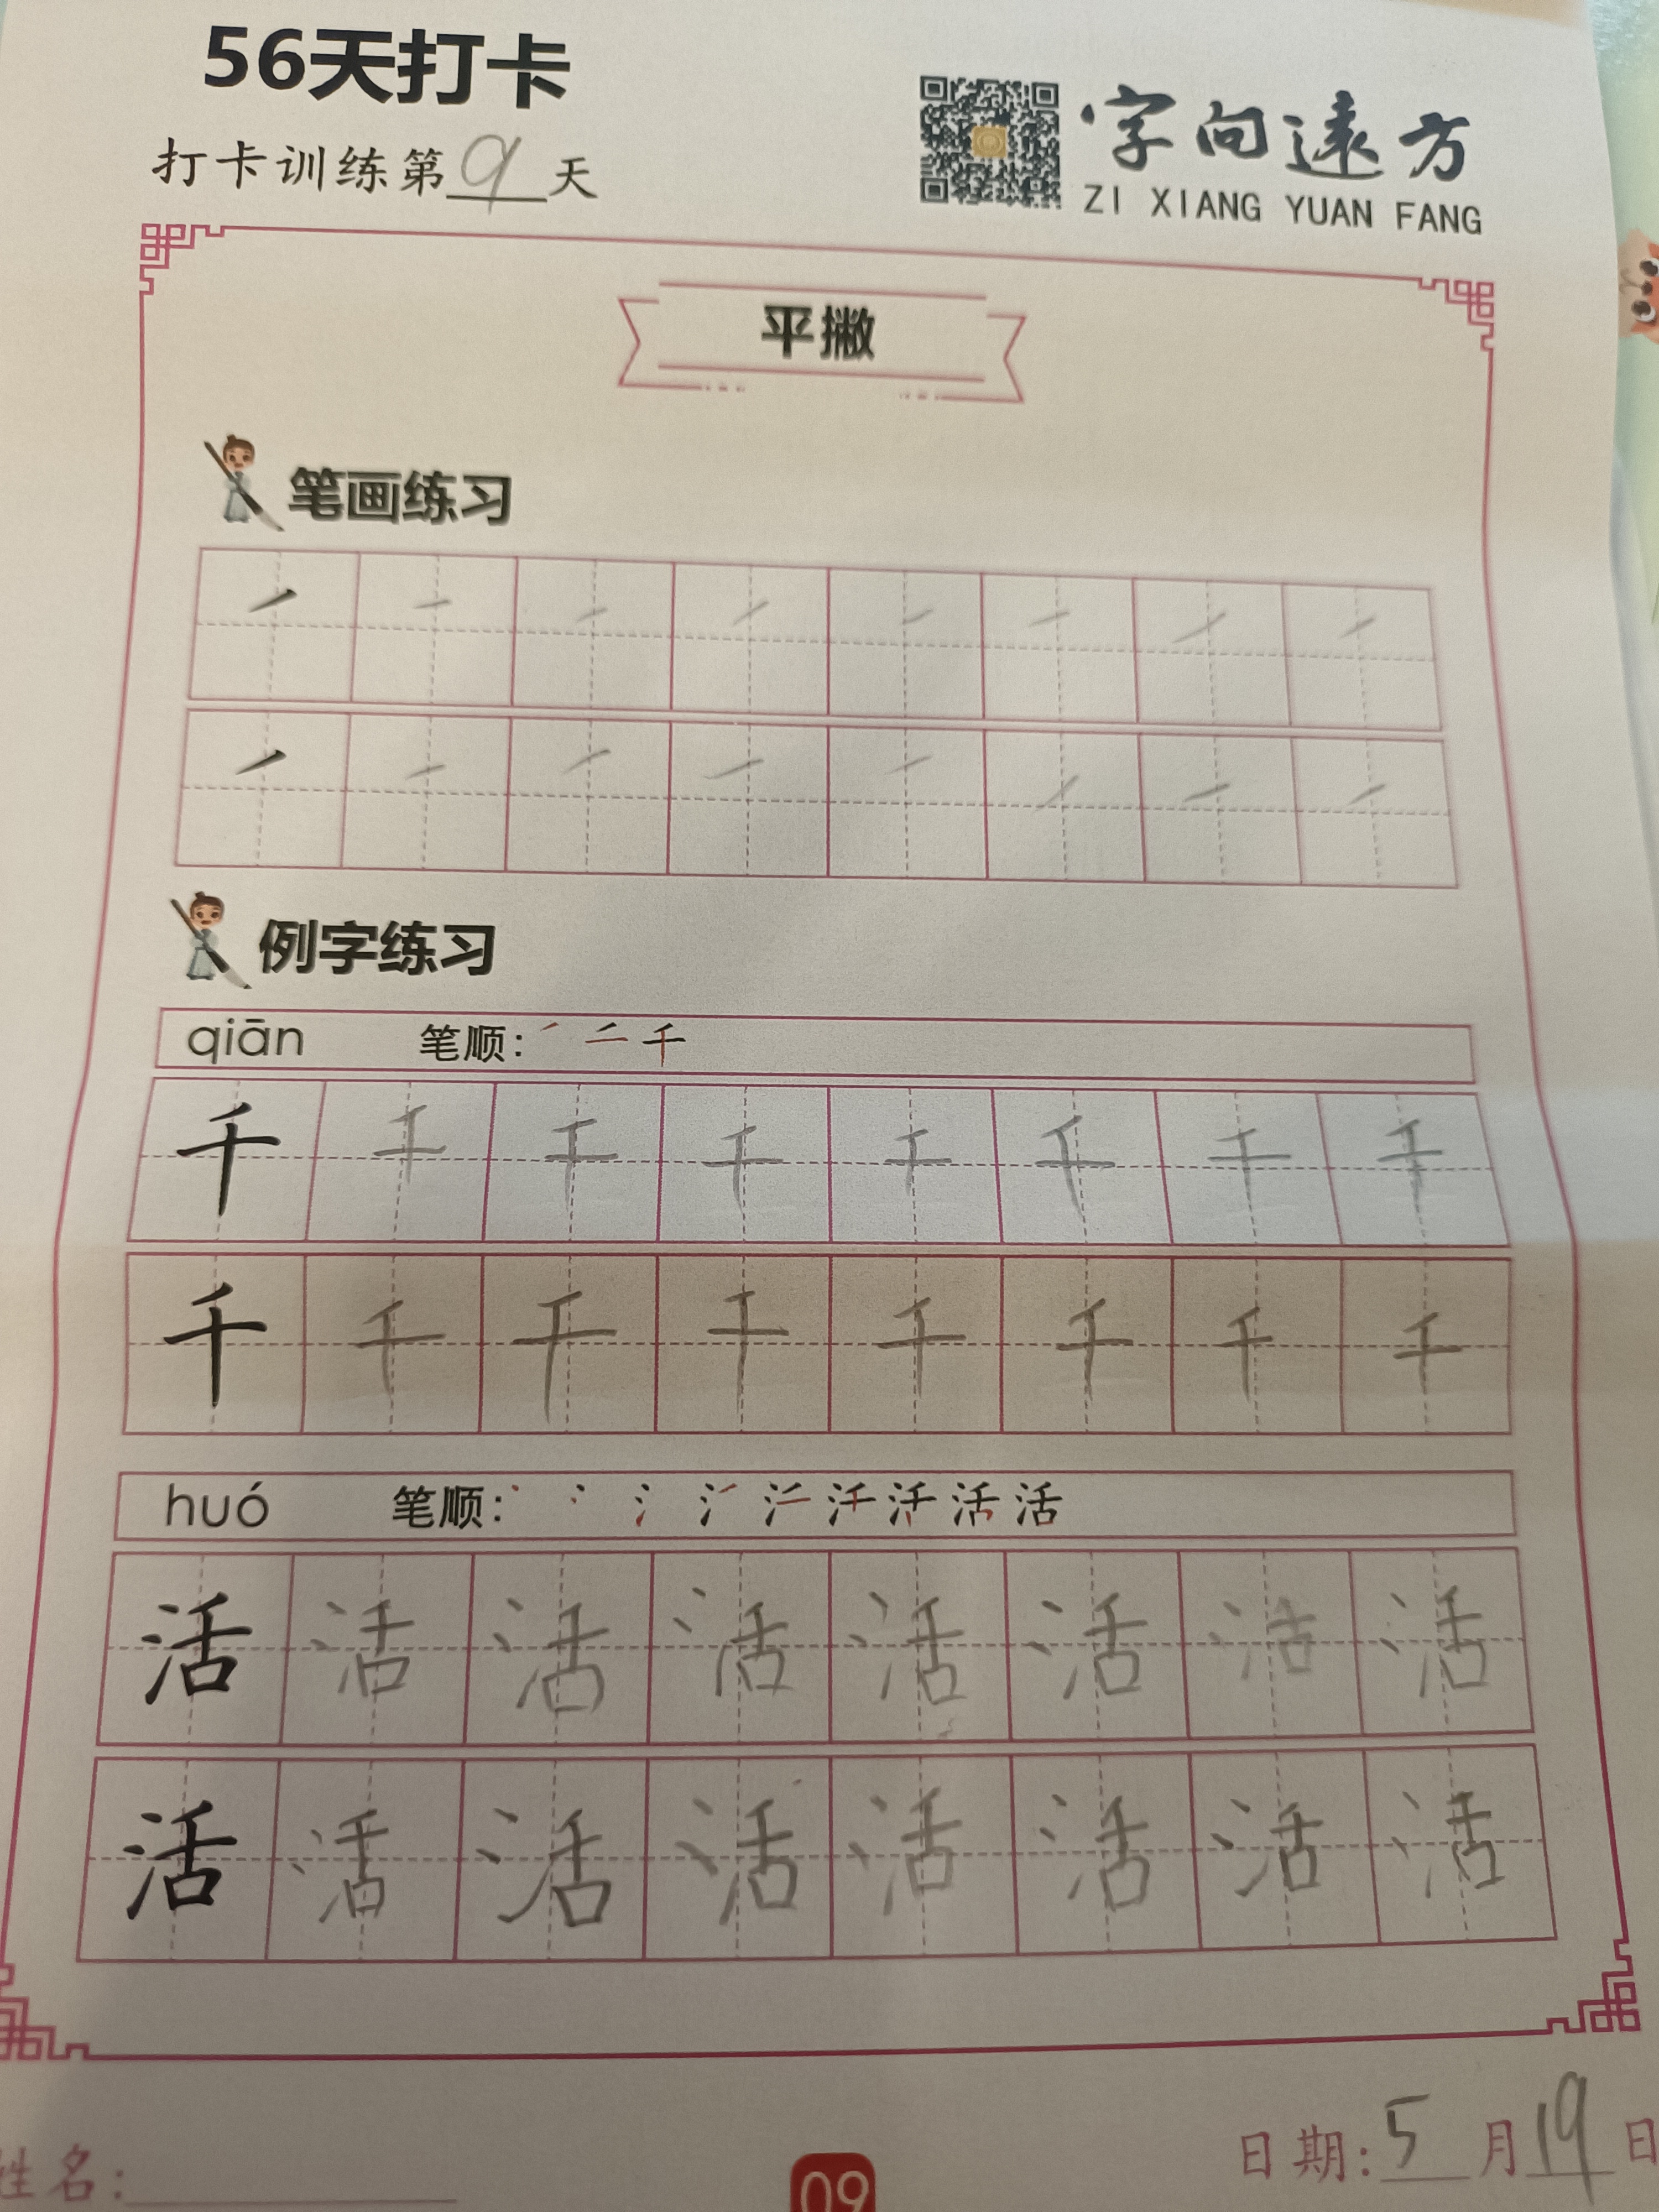 56天打卡
打卡训练第9天
字向遠方
ZI XIANG YUAN FANG
平撇
笔画练习
例字练习
qiān 笔顺: ㇒ 二 千
千 千 千 千 千 千 千 千
千 千 千 千 千 千 千 千
huó 笔顺: 活
活 活 活 活 活 活 活 活
活 活 活 活 活 活 活 活
姓名:
日期: 5月19日
09